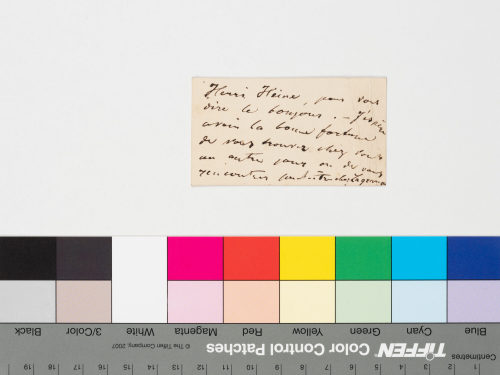 Henri Heine, pour vous
dire le bonjour. – J'espère
avoir la bonne fortune
de vous trouver chez vous
un autre jour ou de vous
rencontrer peut-être chez
Black
3/Color
White
Magenta
Red
Yellow
Green
Cyan
Blue
© The Tiffen Company, 2007
TIFFEN Color Control Patches
Centimetres
19 18 17 16 15 14 13 12 11 10 9 8 7 6 5 4 3 2 1